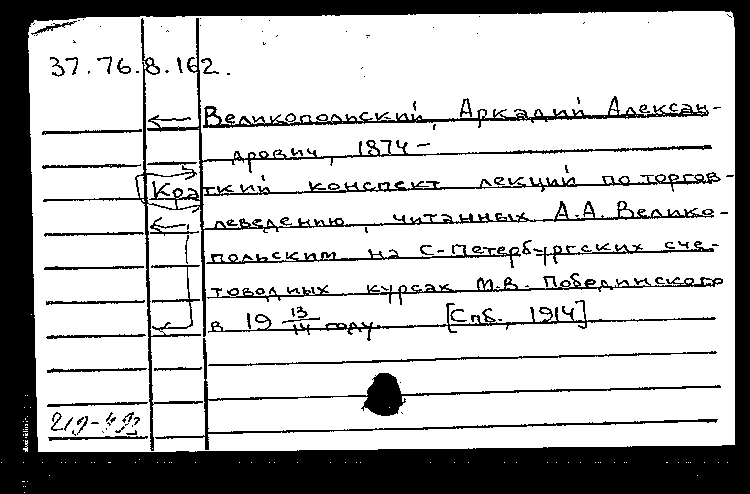 37.76.8.162.
Великопольский, Аркадий Алексан-
дрович, 1874-
Краткий конспект лекций по торгов-
леведению, читанных А.А. Велико-
польским на С-Петербургских сче-
товодных курсах М.В. Побединского
в 19 13/14 году. [Спб., 1914]
219-492